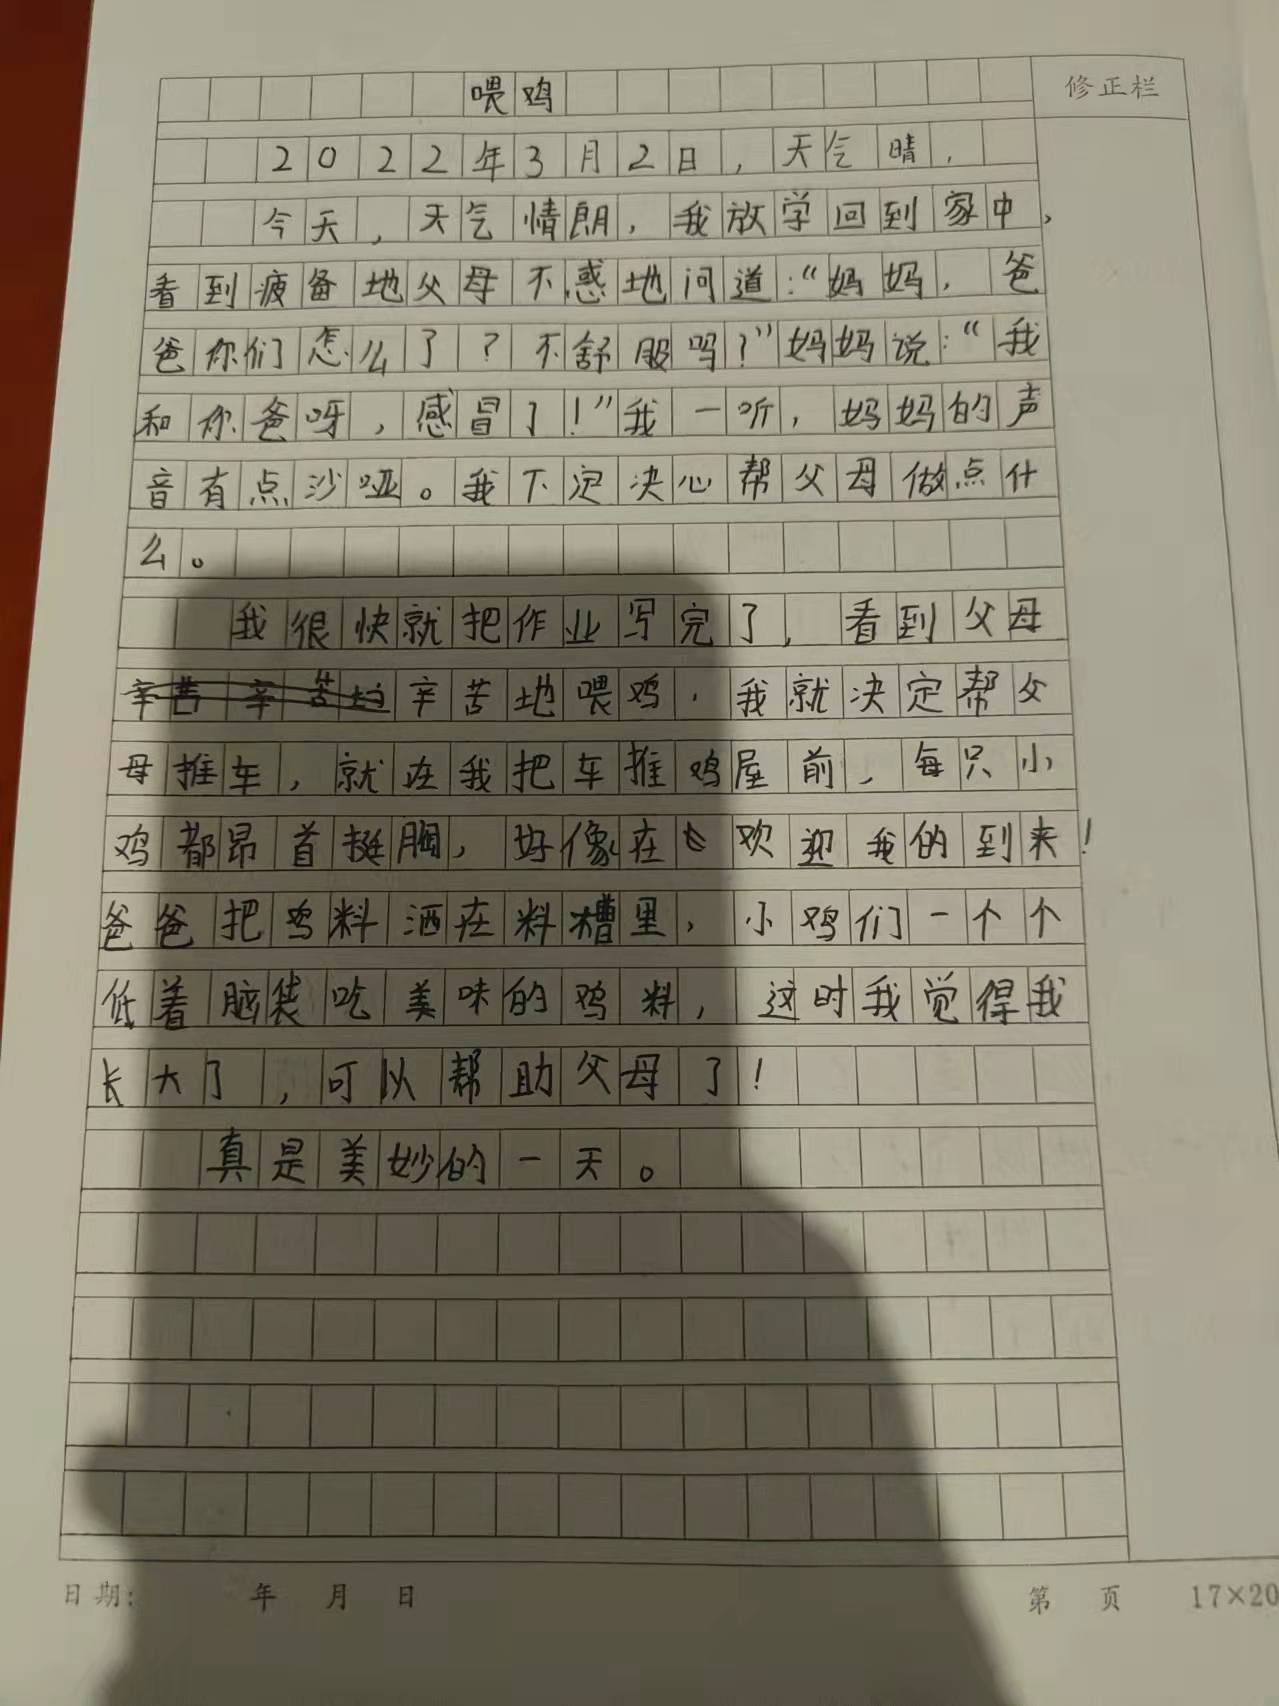 喂鸡
修正栏
2022年3月2日，天气晴，
今天，天气情朗，我放学回到家中，
看到疲备地父母不惑地问道：“妈妈，爸
爸你们怎么了？不舒服吗？”妈妈说：“我
和你爸呀，感冒了！”我一听，妈妈的声
音有点沙哑。我下定决心帮父母做点什
么。
我很快就把作业写完了，看到父母
辛苦地喂鸡，我就决定帮父
母推车，就在我把车推鸡屋前，每只小
鸡都昂首挺胸，好像在欢迎我的到来！
爸爸把鸡料洒在料槽里，小鸡们一个个
低着脑袋吃美味的鸡料，这时我觉得我
长大了，可以帮助父母了！
真是美妙的一天。
日期： 年 月 日
第 页 17×20